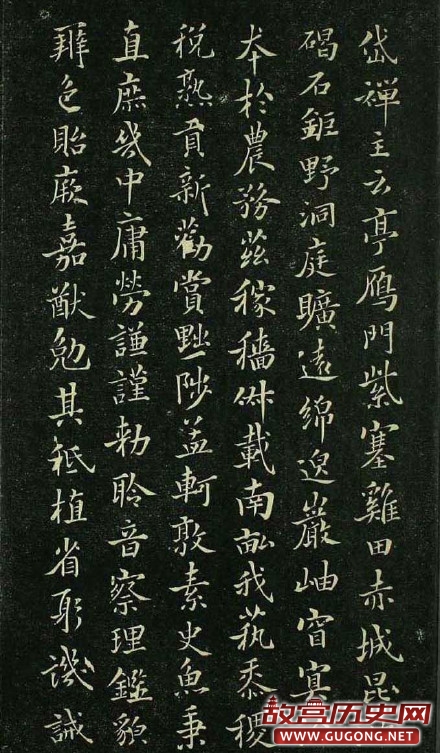 岱禪主云亭鴈門紫塞雞田赤城昆
碣石鉅野洞庭曠遠綿邈巖岫窅冥
本於農務茲稼穡俶載南畝我蓺黍稷
稅熟貢新勸賞黜陟孟軻敦素史魚秉
直庶幾中庸勞謙謹勅聆音察理鑑貌
辨色貽厥嘉猷勉其祗植省躬譏誡
故宫历史网
WWW.GUGONG.NET